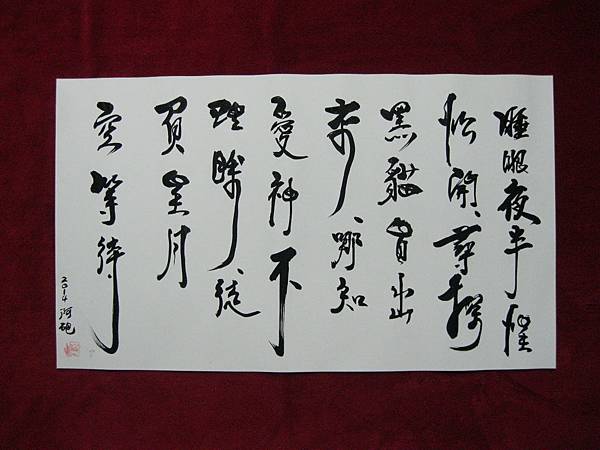 睡眼夜半惺
忪開、尋探
黑貓肯出
來、哪知
愛神不
理睬、徒
負星月
空等待
2014